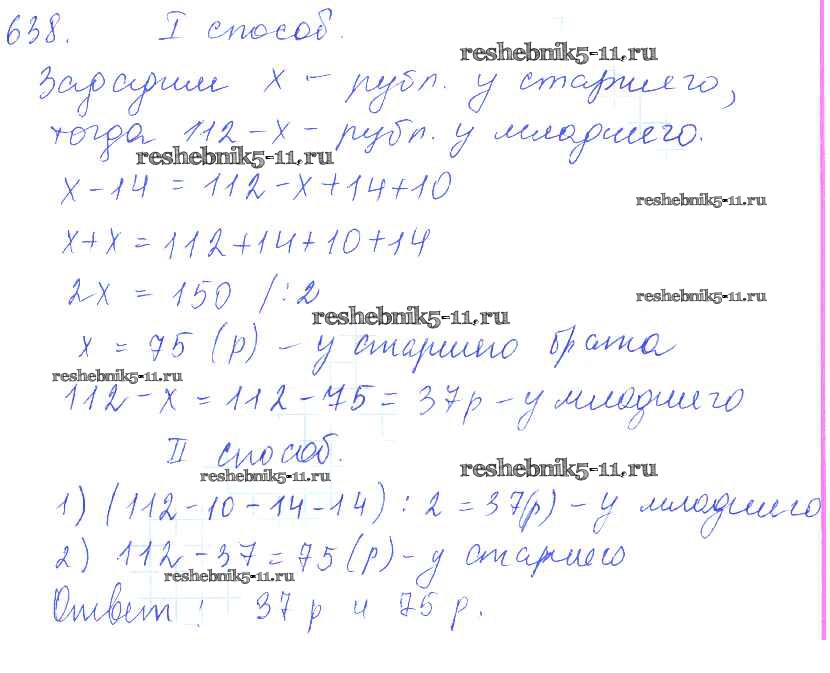 638. I способ.
reshebnik5-11.ru
Зададим x – рубл. у старшего,
тогда 112 – x – рубл. у младшего.
reshebnik5-11.ru
x – 14 = 112 – x + 14 + 10
reshebnik5-11.ru
x + x = 112 + 14 + 10 + 14
2x = 150 /:2
reshebnik5-11.ru
reshebnik5-11.ru
x = 75 (р) – у старшего брата
reshebnik5-11.ru
112 – x = 112 – 75 = 37р – у младшего
II способ.
reshebnik5-11.ru
reshebnik5-11.ru
1) (112 – 10 – 14 – 14) : 2 = 37(р) – у младшего
2) 112 – 37 = 75 (р) – у старшего
reshebnik5-11.ru
Ответ: 37 р и 75 р.